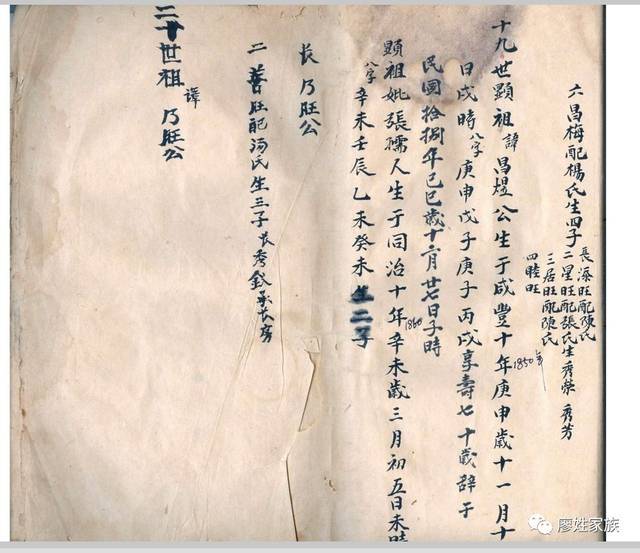 六昌梅配楊氏生四子
長添旺配陳氏
二星旺配張氏生秀榮 秀芳
三居旺配陳氏
四睦旺
十九世顯祖諱昌煜公生于咸豐十年庚申歲十一月十
1850年
日戌時八字庚申戊子庚子丙戌享壽七十歲辭于
民國拾捌年己巳歲十二月廿七日子時
顯祖妣張孺人生于同治十年辛未歲三月初五日未時
1860
八字辛未壬辰乙未癸未生二子
長乃旺公
二善旺配湯氏生三子長秀錢承長房
二十世祖諱乃旺公
廖姓家族